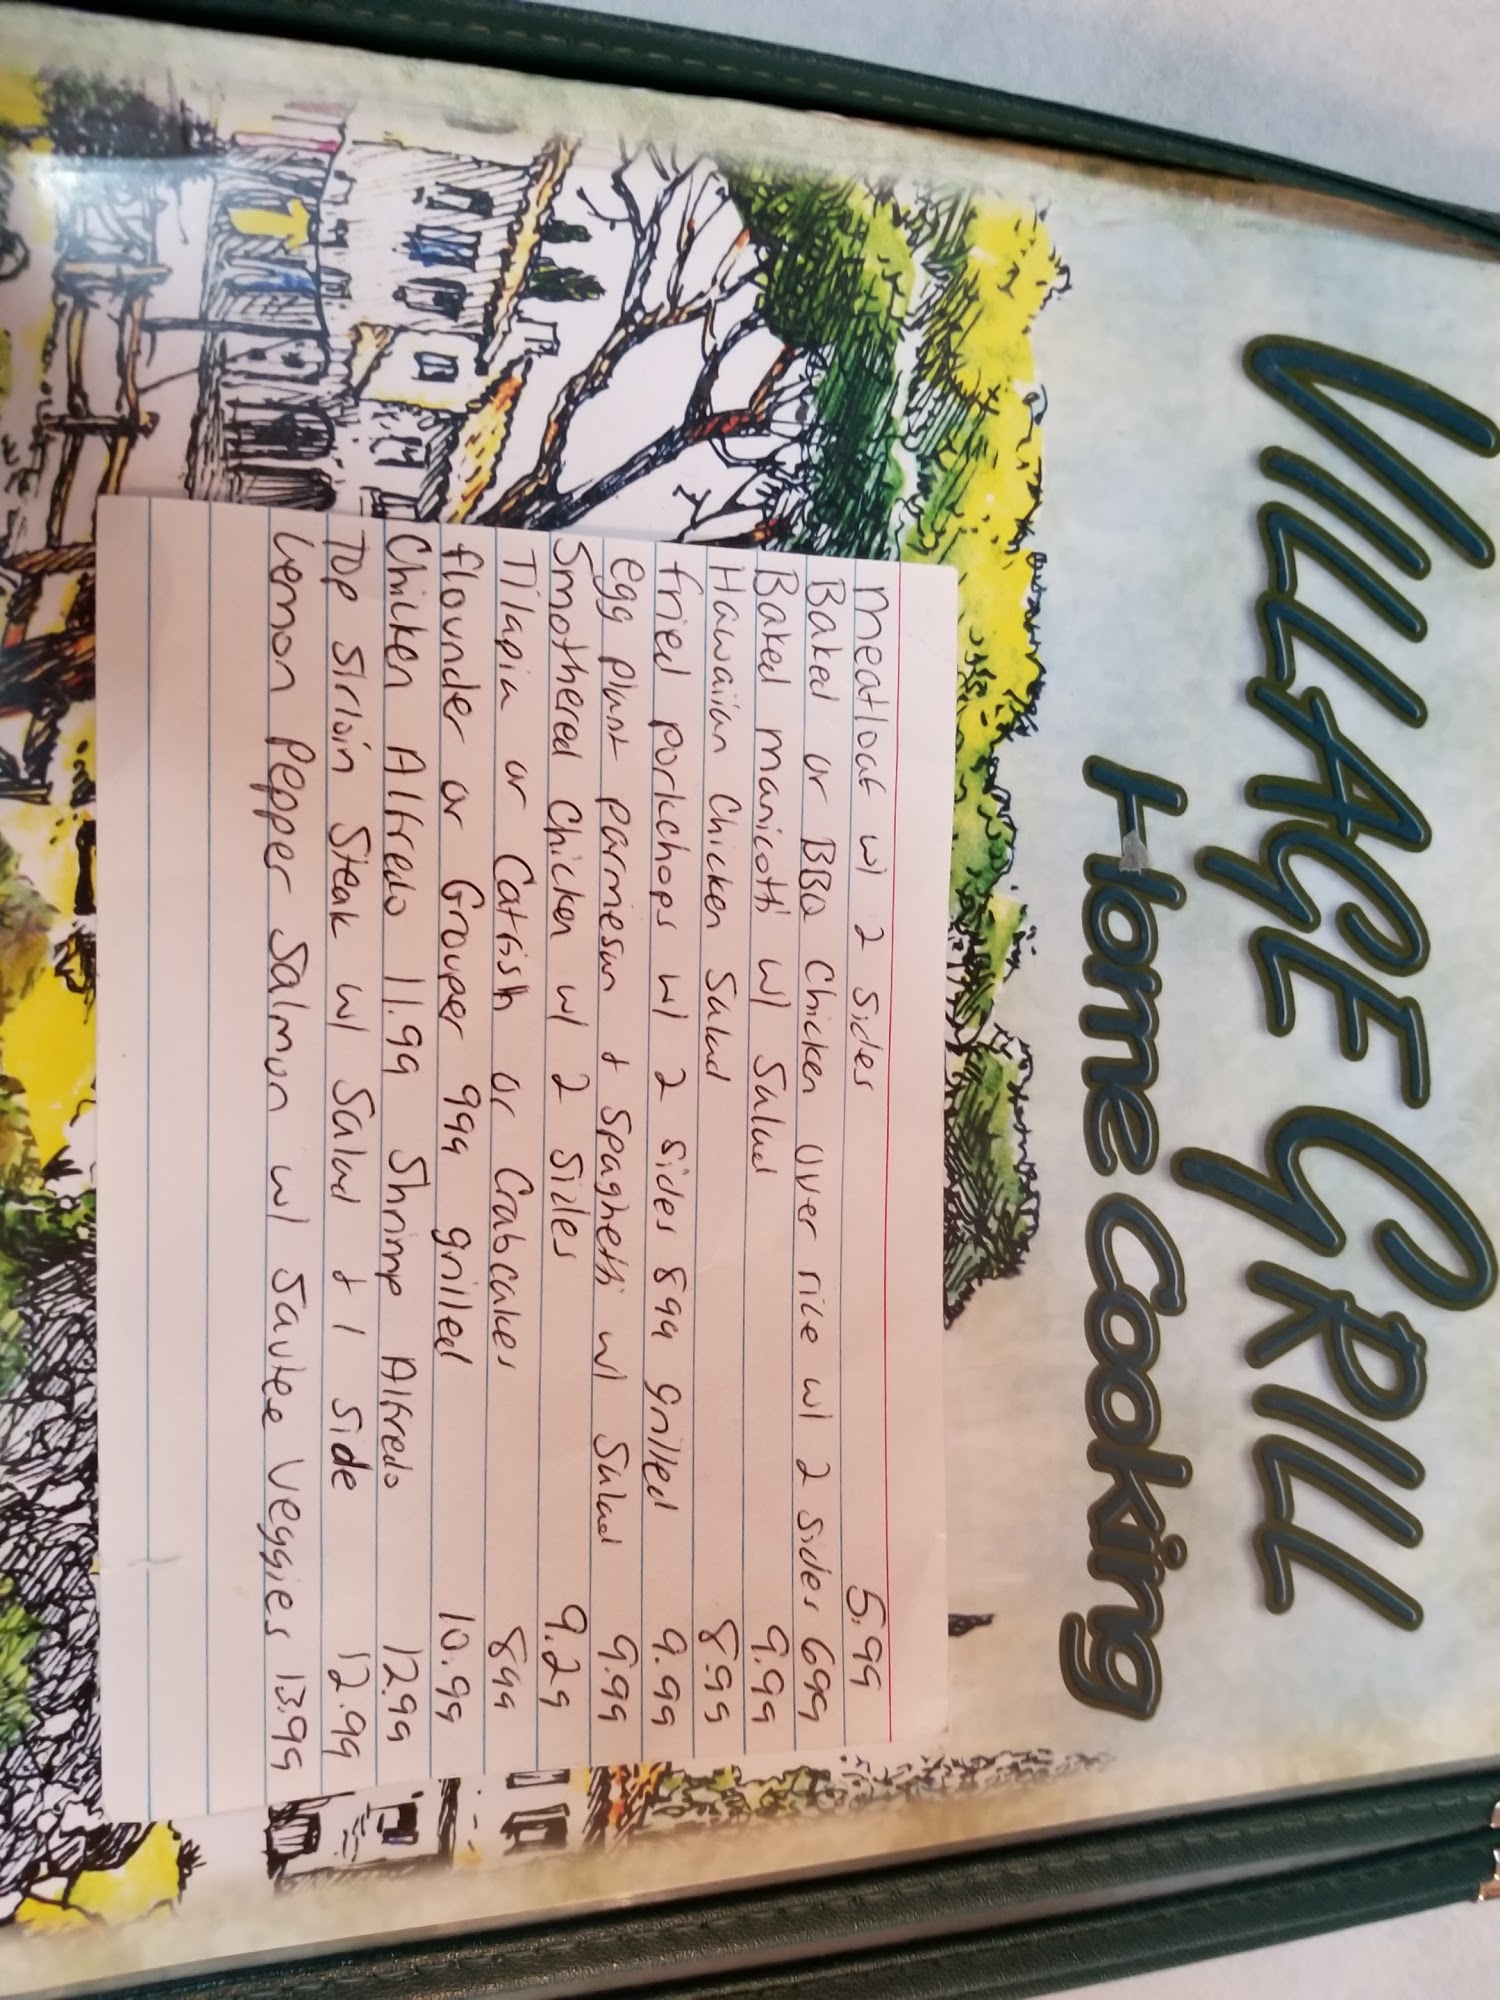 VILLAGE GRILL
Home Cooking
meatloaf w/ 2 sides 5.99
Baked or BBQ Chicken over rice w/ 2 sides 699
Baked manicotti w/ Salad 9.99
Hawaiian Chicken Salad 8.99
fried porkchops w/ 2 sides 899 grilled 9.99
egg plant parmesan + spaghetti w/ Salad 9.99
Smothered Chicken w/ 2 sides 9.29
Tilapia or Catfish or Crabcakes 899
flounder or Grouper 999 grilled 10.99
Chicken Alfredo 11.99 Shrimp Alfredo 12.99
Top Sirloin Steak w/ Salad + 1 side 12.99
Lemon Pepper Salmon w/ Sautee Veggies 13.99